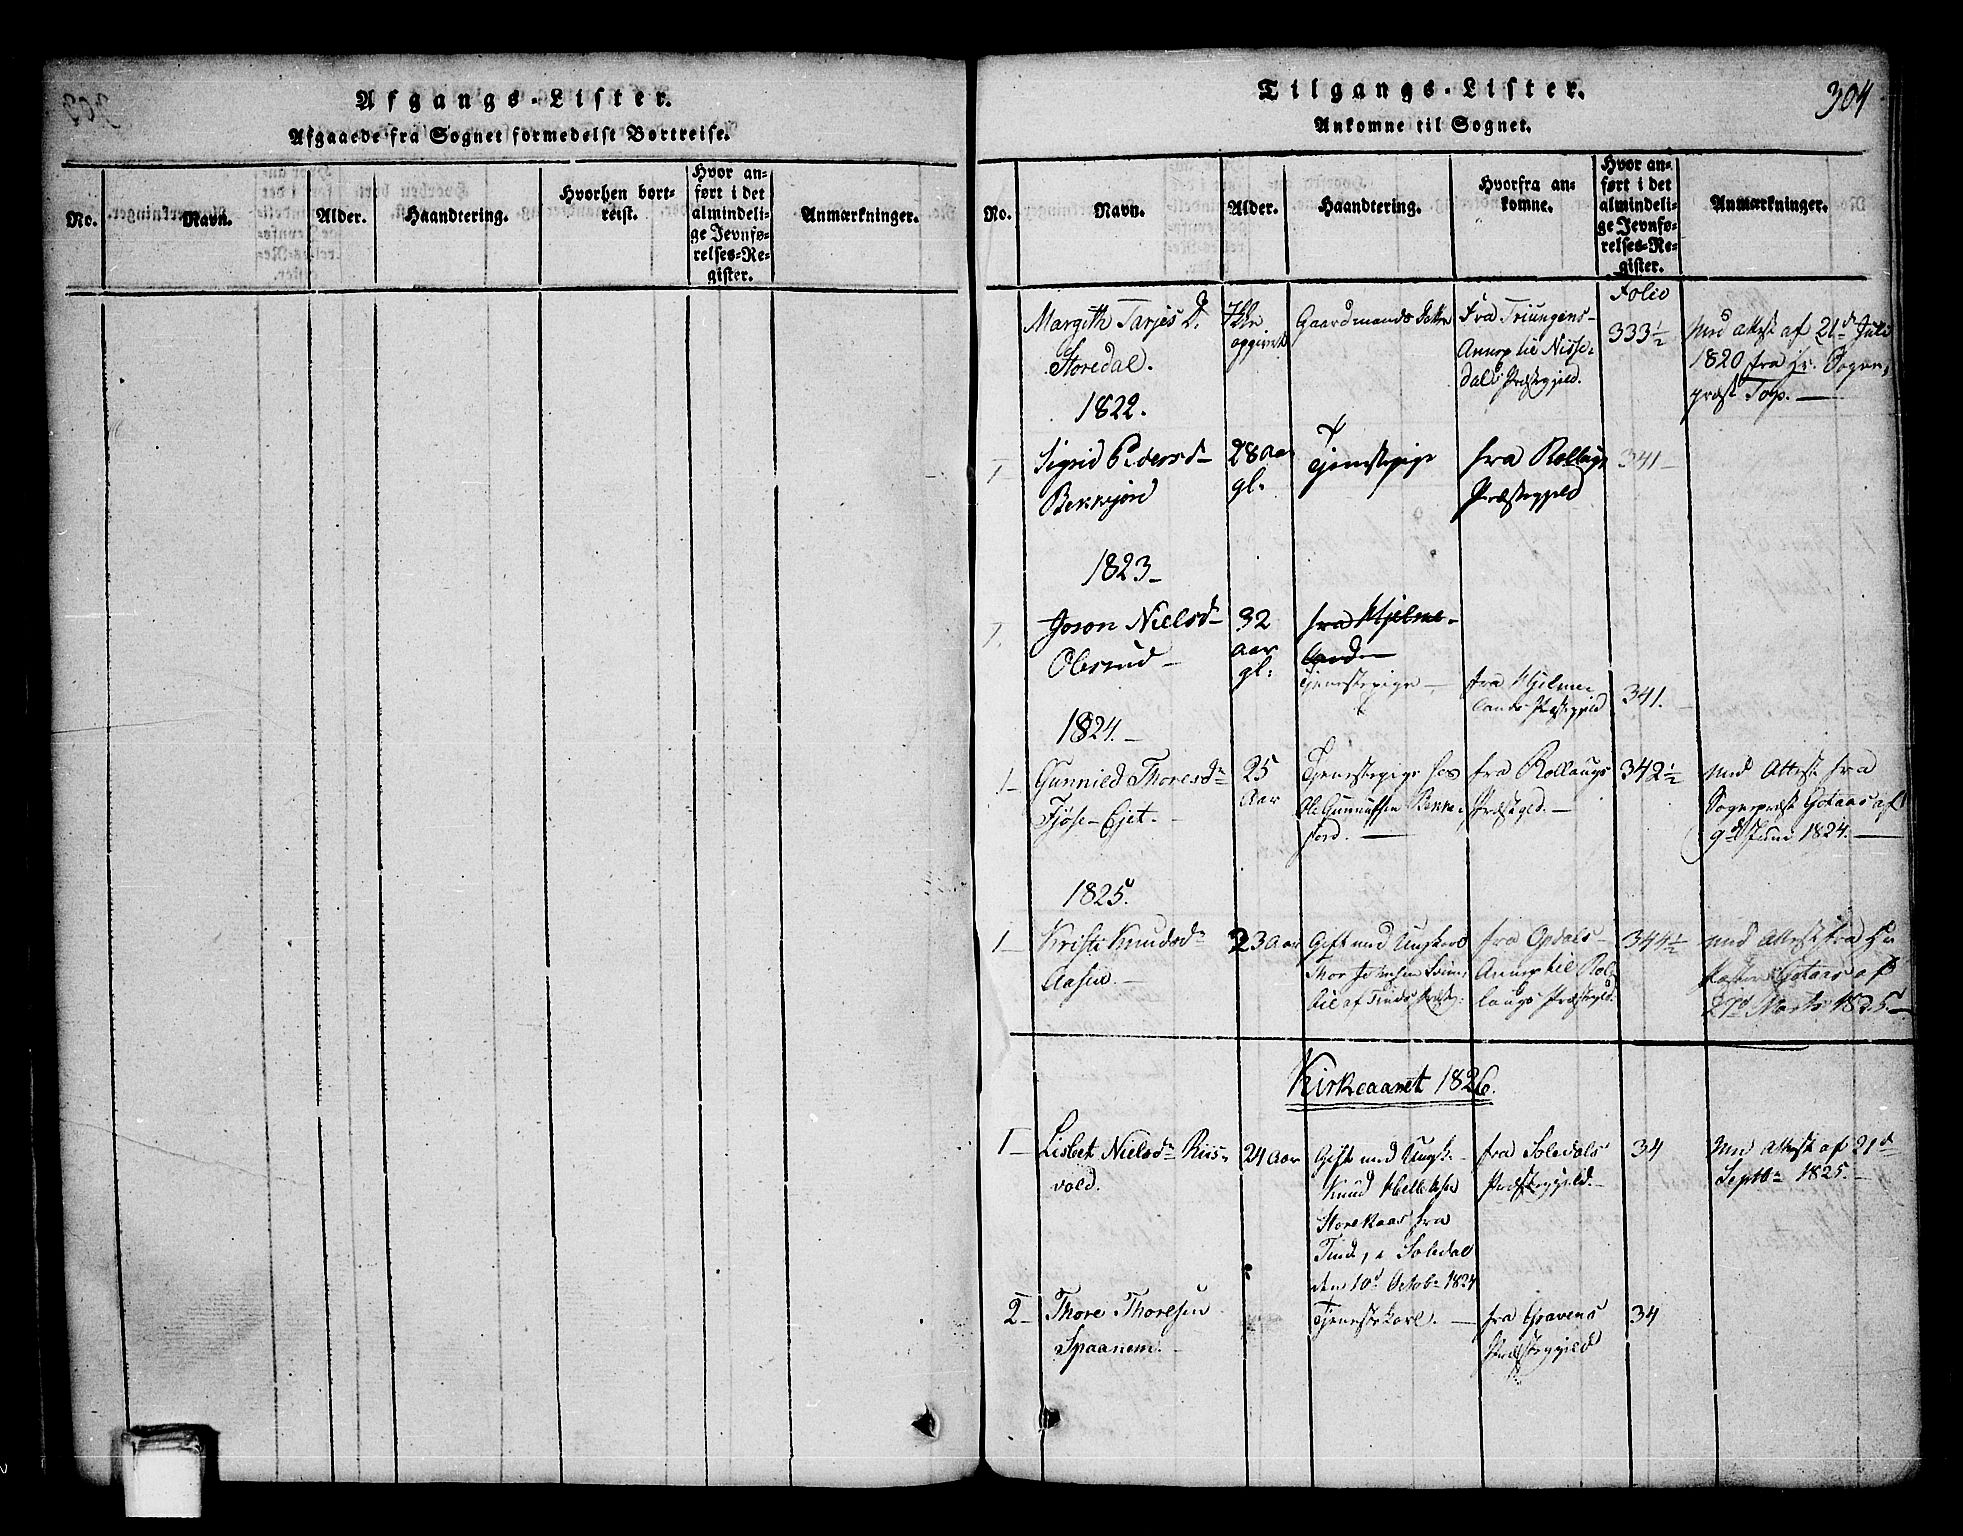 Afgangs-Lister.
Afgaaede fra Sognet formedelst Bortreise.
No.
Navn.
Alder.
Haandtering.
Hvorhen bort-
reist.
Hvor an-
ført i det
almindeli-
ge Jevnfø-
relses-Re-
gister.
Anmærkninger.
304
Tilgangs-Lister.
Ankomne til Sognet.
No.
Navn.
Alder.
Haandtering.
Hvorfra an-
komne.
Hvor an-
ført i det
almindeli-
ge Jevnfø-
relses-Re-
gister.
Anmærkninger.
Folio
Margith Tarjes D.
Storedal.
opgivet
Gaardmands
Fra Triungens-
Annex til Nisse-
dals Præstegjeld.
333½
Med Attest af 21d Juli
1820 fra Hr. Sogne-
præst
1822.
Sigrid Pedersd
28 Aar
gl.
Tjenestepige
fra Rollugs
Præstegjeld
341
1823
Nielsd
32
Aar
gl:
fra Hjelme-
land
Tjenestepige
fra Hjelme-
lands Præstegjeld
341.
1824.
1
Gunnild Thoresd
Fjøse-Ejet.
25
Aar
Tjenestepige hos
Ole
fra Rollaugs
Præstgjld.
342½
Med Attest fra
Sognepræst Gotaas af
9d Juni 1824.
1825.
1
Kristi Knudsd
Aasen.
23 Aar
Gift med Ungkarl
Thor
til af Tinds Præstg:
fra Opdals-
Annex til Rol-
laugs Præstegjld.
344½
Med Attest fra Hr
Gotaas af
Marts 1825.
Kirkeaaret 1826.
1
Lisbet Nielsd Riis-
vold.
24 Aar
Gift med Ungk.
Knud
Storekaas fra
Tind, i Soledal
den 10d Octob 1824
fra Soledals
Præstegjeld.
34
Med Attest af 21d
Septb 1825.
2
Thore Thoresen
Spaanem.
Tjenestekarl.
fra Gravens
Præstegjeld
34